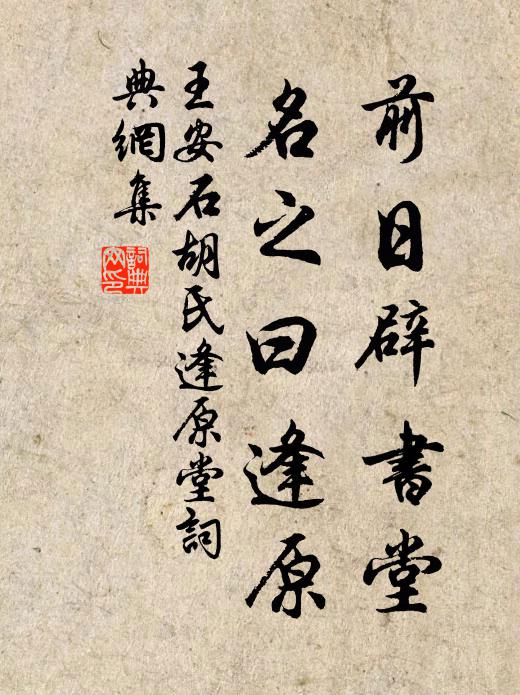 前日辟書堂
名之曰逢原
王安石胡氏逢原堂詞
典網集
詞典網印